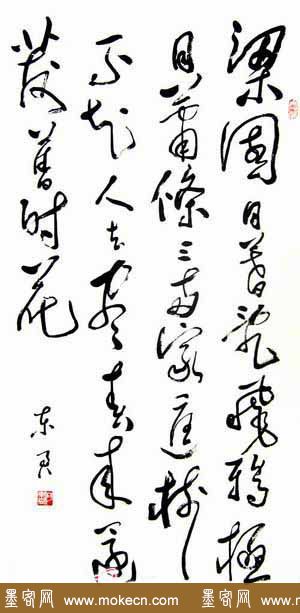 梁園日暮亂飛鴉極
目蕭條三兩家庭樹
不知人去盡春來還
發舊時花
墨客网 www.mokecn.com 墨客网